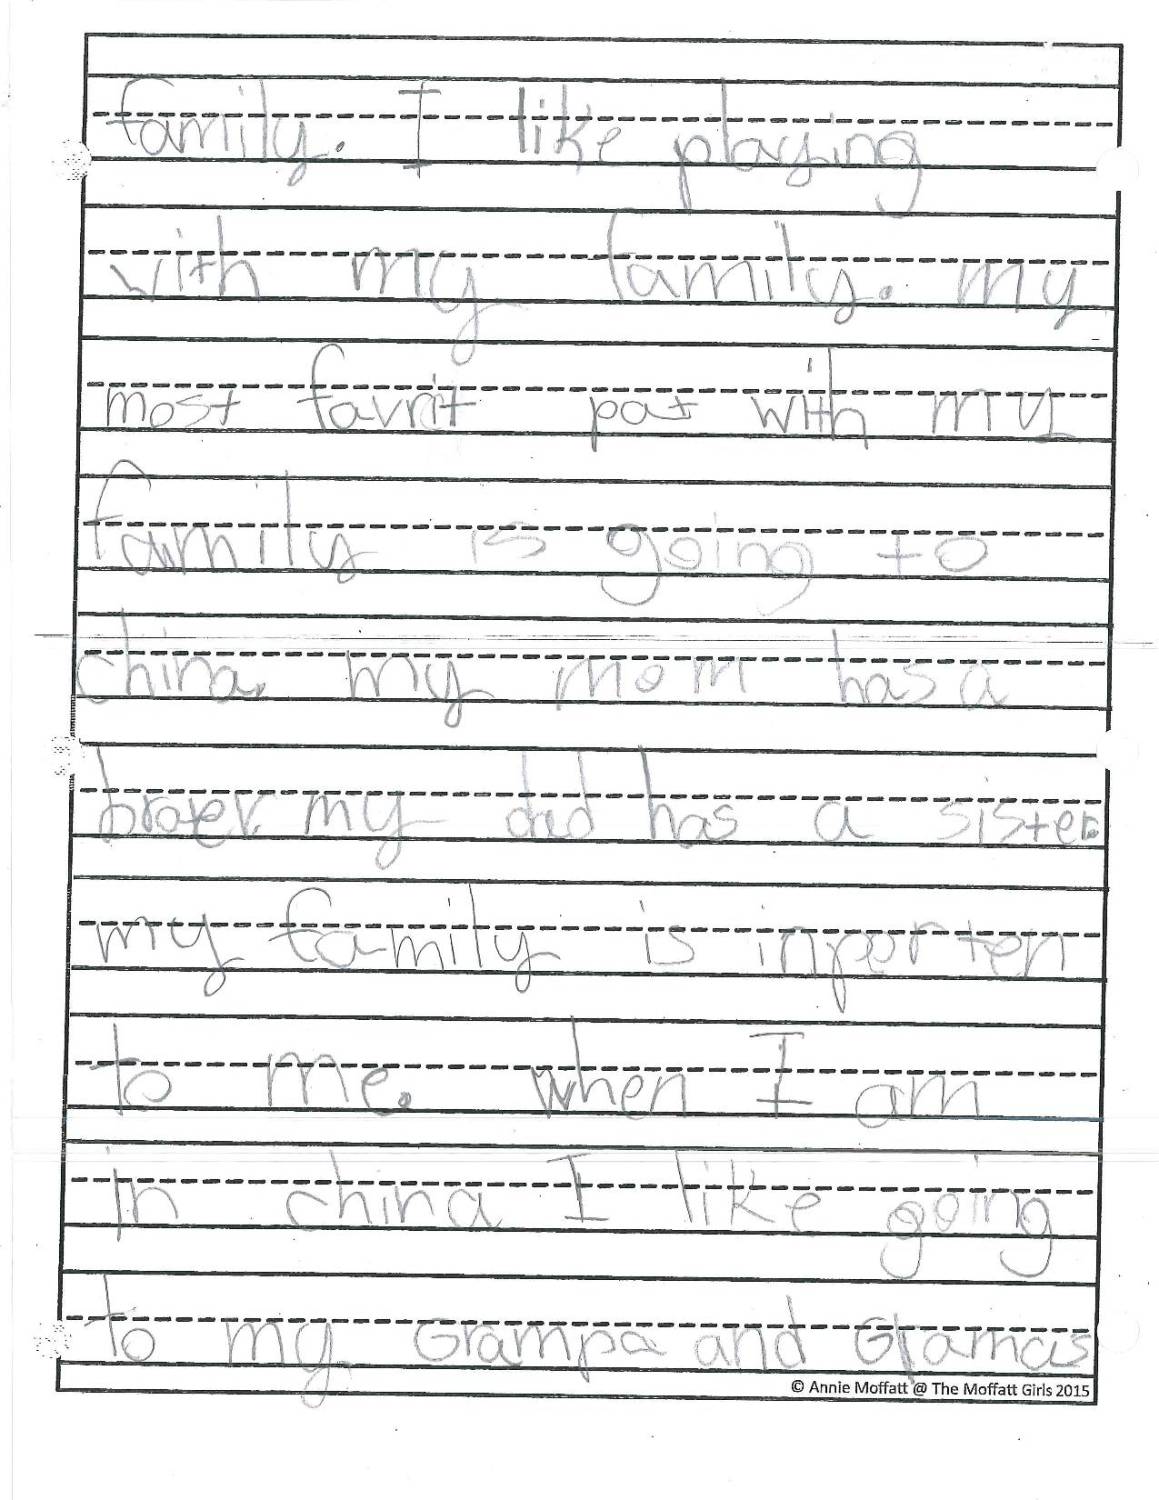 family. I like playing
with my family. my
most favrit pat with my
family is going to
china. my mom has a
broter. my dad has a sister.
my family is inporten
to me. when I am
in china I like going
to my Grampa and Gramas
© Annie Moffatt @ The Moffatt Girls 2015